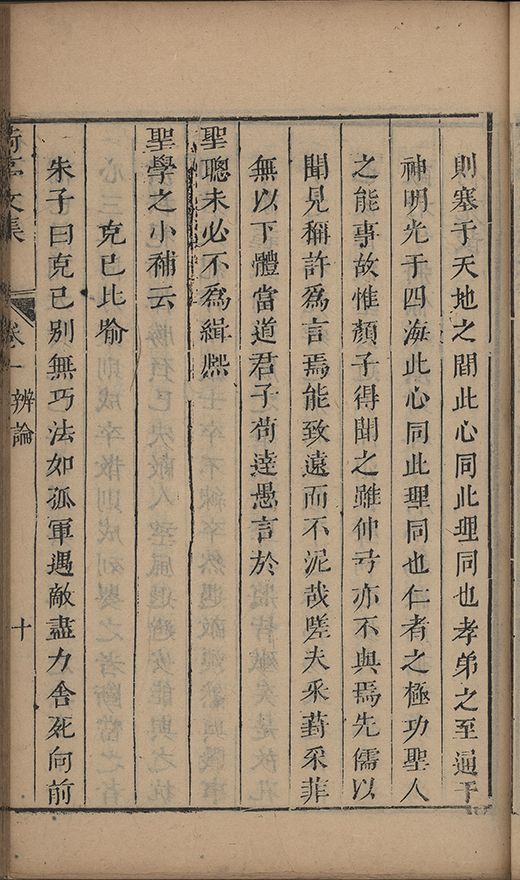 則塞于天地之間此心同此理同也孝弟之至通于
神明光于四海此心同此理同也仁者之極功聖人
之能事故惟顏子得聞之雖仲弓亦不與焉先儒以
聞見稱許爲言焉能致遠而不泥哉嗟夫采葑采菲
無以下體當道君子苟逹愚言於
聖聰未必不爲緝熈
聖學之小補云
克己比喻
朱子曰克己別無巧法如孤軍遇敵盡力舍死向前
亭文集
卷一
辨論
十